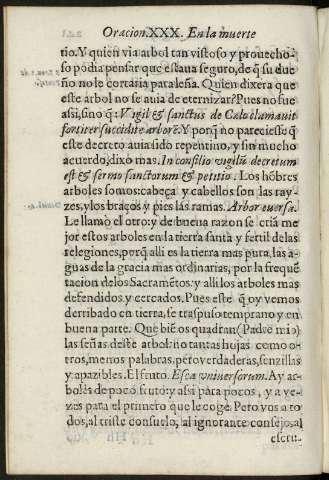 Oracion.XXX. En la muerte
rio. Y quien via arbol tan vistoso y prouecho-
so podia pensar que estaua seguro, de q̃ su due
ño no le cortaria para leña. Quien dixera que
este arbol no se auia de eternizar? Pues no fue
assi, sino q̃. Vigil & sanctus de Cælo clamauit
fortiter succidite arborẽ. Y porq̃ no pareciesse q̃
este decreto auia sido repentino, y sin mucho
acuerdo, dixo mas. In consilio vigiliũ decretum
est & sermo sanctorum & petitio. Los hõbres
arboles somos: cabeça y cabellos son las ray-
zes, y los braços y pies las ramas. Arbor euersa.
Le llamo el otro: y de buena razon se criã me
jor estos arboles en la tierra santa y fertil de las
relegiones, porq̃ alli es la tierra mas pura, las a-
guas de la gracia mas ordinarias, por la frequẽ
tacion de los Sacramẽtos: y alli los arboles mas
defendidos y cercados. Pues este q̃ oy vemos
derribado en tierra, se traspuso temprano y en
buena parte. Què biẽ os quadran (Padre mio)
las señas deste arbol: no tantas hojas como o-
tros, menos palabras, pero verdaderas, senzillas
y apazibles. El fruto. Esca vniuersorum. Ay ar-
boles de poco fruto: y assi para pocos, y a ve-
zes para el primero que le coge. Pero vos a to-
dos, al triste consuelo, al ignorante consejo, al
escru-